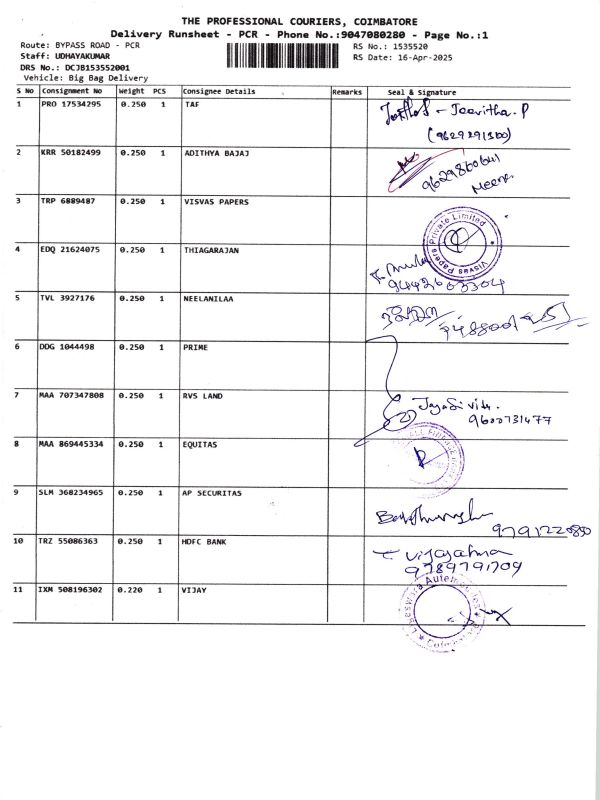 THE PROFESSIONAL COURIERS, COIMBATORE
Delivery Runsheet - PCR - Phone No.:9047080280 - Page No.:1
Route: BYPASS ROAD - PCR RS No.: 1535520
Staff: UDHAYAKUMAR RS Date: 16-Apr-2025
DRS No.: DCJB153552001
Vehicle: Big Bag Delivery
S No Consignment No Weight PCS Consignee Details Remarks Seal & Signature
1 PRO 17534295 0.250 1 TAF - Jeevitha.P
2 KRR 50182499 0.250 1 ADITHYA BAJAJ
9629860641
Meena
3 TRP 6889487 0.250 1 VISVAS PAPERS
Visvas Papers Private Limited
4 EDQ 21624075 0.250 1 THIAGARAJAN
9442603304
5 TVL 3927176 0.250 1 NEELANILAA
6 DDG 1044498 0.250 1 PRIME
7 MAA 707347808 0.250 1 RVS LAND
9600731477
8 MAA 869445334 0.250 1 EQUITAS
9 SLM 368234965 0.250 1 AP SECURITAS
9791220850
10 TRZ 55086363 0.250 1 HDFC BANK
9789791709
11 IXM 508196302 0.220 1 VIJAY